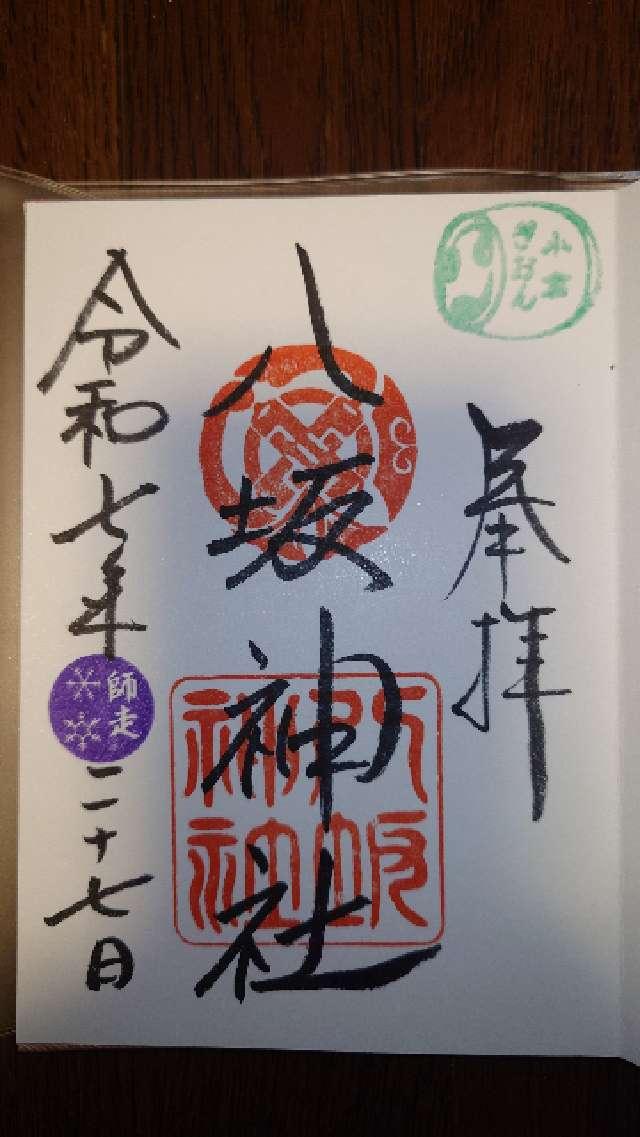 奉拝
ぎおん
八坂神社
八坂
神社
令和七年
師走
二十七日